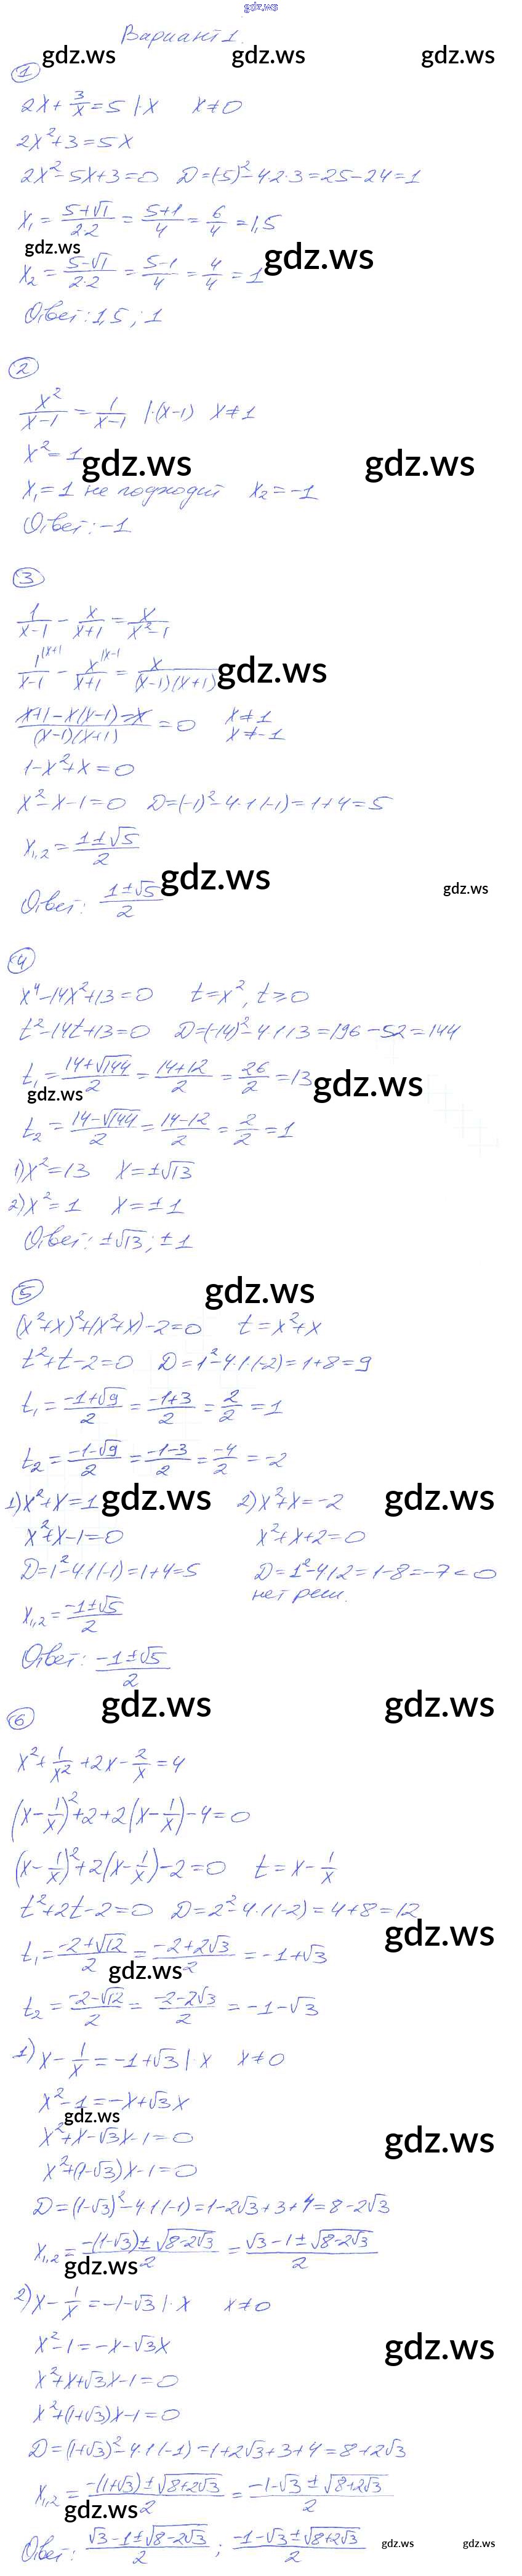 gdz.ws
Вариант 1.
gdz.ws gdz.ws gdz.ws
1
2x + 3/x = 5 |·x x ≠ 0
2x² + 3 = 5x
2x² - 5x + 3 = 0 D = (-5)² - 4·2·3 = 25 - 24 = 1
x₁ = (5+√1)/(2·2) = (5+1)/4 = 6/4 = 1,5
gdz.ws gdz.ws
x₂ = (5-√1)/(2·2) = (5-1)/4 = 4/4 = 1
Ответ: 1,5; 1
2
x²/(x-1) = 1/(x-1) |·(x-1) x ≠ 1
x² = 1
gdz.ws gdz.ws
x₁ = 1 не подходит x₂ = -1
Ответ: -1
3
1/(x-1) - x/(x+1) = x/(x²-1)
1^{|x+1}/(x-1) - x^{|x-1}/(x+1) = x/((x-1)(x+1))
gdz.ws
(x+1-x(x-1)-x)/((x-1)(x+1)) = 0 x ≠ 1
x ≠ -1
1 - x² + x = 0
x² - x - 1 = 0 D = (-1)² - 4·1·(-1) = 1 + 4 = 5
x₁,₂ = (1±√5)/2
gdz.ws gdz.ws
Ответ: (1±√5)/2
4
x⁴ - 14x² + 13 = 0 t = x², t ≥ 0
t² - 14t + 13 = 0 D = (-14)² - 4·1·13 = 196 - 52 = 144
t₁ = (14+√144)/2 = (14+12)/2 = 26/2 = 13
gdz.ws gdz.ws
t₂ = (14-√144)/2 = (14-12)/2 = 2/2 = 1
1) x² = 13 x = ±√13
2) x² = 1 x = ±1
Ответ: ±√13; ±1
gdz.ws
5
(x²+x)² + (x²+x) - 2 = 0 t = x² + x
t² + t - 2 = 0 D = 1² - 4·1·(-2) = 1 + 8 = 9
t₁ = (-1+√9)/2 = (-1+3)/2 = 2/2 = 1
t₂ = (-1-√9)/2 = (-1-3)/2 = -4/2 = -2
1) x² + x = 1 gdz.ws 2) x² + x = -2 gdz.ws
x² + x - 1 = 0 x² + x + 2 = 0
D = 1² - 4·1·(-1) = 1 + 4 = 5 D = 1² - 4·1·2 = 1 - 8 = -7 < 0
нет реш.
x₁,₂ = (-1±√5)/2
Ответ: (-1±√5)/2
gdz.ws gdz.ws
6
x² + 1/x² + 2x - 2/x = 4
(x - 1/x)² + 2 + 2(x - 1/x) - 4 = 0
(x - 1/x)² + 2(x - 1/x) - 2 = 0 t = x - 1/x
t² + 2t - 2 = 0 D = 2² - 4·1·(-2) = 4 + 8 = 12
gdz.ws
t₁ = (-2+√12)/2 = (-2+2√3)/2 = -1 + √3
gdz.ws
t₂ = (-2-√12)/2 = (-2-2√3)/2 = -1 - √3
1) x - 1/x = -1 + √3 |·x x ≠ 0
x² - 1 = -x + √3x
gdz.ws
x² + x - √3x - 1 = 0
gdz.ws
x² + (1-√3)x - 1 = 0
D = (1-√3)² - 4·1·(-1) = 1 - 2√3 + 3 + 4 = 8 - 2√3
x₁,₂ = (-(1-√3)±√(8-2√3))/2 = (√3-1±√(8-2√3))/2
gdz.ws
2) x - 1/x = -1 - √3 |·x x ≠ 0
x² - 1 = -x - √3x
gdz.ws
x² + x + √3x - 1 = 0
x² + (1+√3)x - 1 = 0
D = (1+√3)² - 4·1·(-1) = 1 + 2√3 + 3 + 4 = 8 + 2√3
x₁,₂ = (-(1+√3)±√(8+2√3))/2 = (-1-√3±√(8+2√3))/2
gdz.ws
Ответ: (√3-1±√(8-2√3))/2 ; (-1-√3±√(8+2√3))/2
gdz.ws gdz.ws